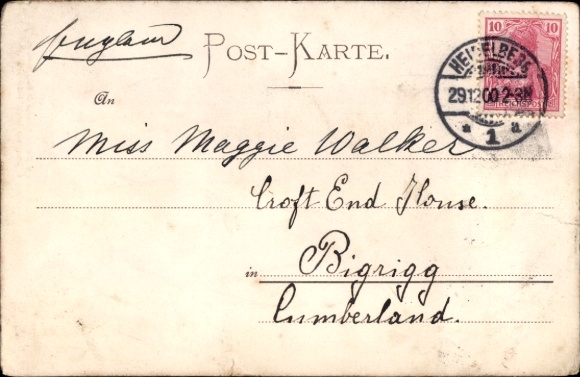 England
POST-KARTE.
10 10
HEIDELBERG
29.12.00 2-3N
* 1 a
An
Miss Maggie Walker
Croft End House.
in Bigrigg
Cumberland.